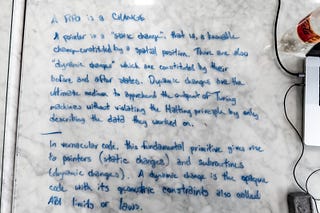 A is a CHANGE
A pointer is a "static change", that is, a traversable
change constituted by a spatial position. There are also
"dynamic changes" which are constituted by their
before and after states. Dynamic changes are the
ultimate medium to apprehend the outputs of Turing
machines without violating the Halting principle by only
describing the data they worked on.
In vernacular code, this fundamental primitive gives rise
to pointers (static changes) and subroutines
(dynamic changes). A dynamic change is the opaque
code with its geometric constraints also called
limits or laws.